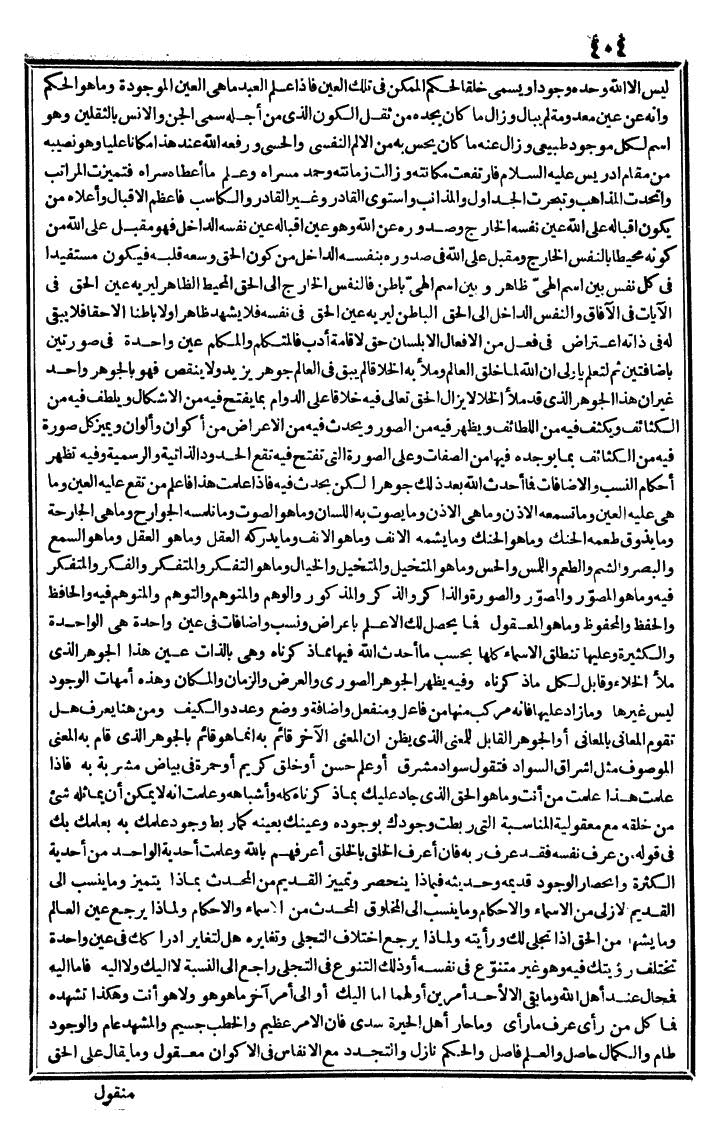 ٤٠٤
ليس الا الله وحده وجودا ويسمى خلقا لحكم الممكن فى تلك العين فاذا علم العبد ماهى العين الموجودة وماهو الحكم
وانه عن عين معدومة لم يبال وزال ما كان يجده من ثقل الكون الذى من أجله سمى الجن والانس بالثقلين وهو
اسم لكل موجود طبيعى وزال عنه ما كان يحس به من الالم النفسى والحسى ورفعه الله عند هذا مكانا عليا وهو نصيبه
من مقام ادريس عليه السلام فارتفعت مكانته وزالت زمانته وحمد مسراه وعلم ما أعطاه سراه فتميزت المراتب
واتحدت المذاهب وتبحرت الجداول والمذانب واستوى القادر وغير القادر والكاسب فاعظم الاقبال وأعلاه من
يكون اقباله على الله عين نفسه الخارج وصدوره عن الله وهو عين اقباله عين نفسه الداخل فهو مقبل على الله من
كونه محيطا بالنفس الخارج ومقبل على الله فى صدوره بنفسه الداخل من كون الحق وسعه قلبه فيكون مستفيدا
فى كل نفس بين اسم الهىّ ظاهر وبين اسم الهىّ باطن فالنفس الخارج الى الحق المحيط الظاهر ليريه عين الحق فى
الآيات فى الآفاق والنفس الداخل الى الحق الباطن ليريه عين الحق فى نفسه فلا يشهد ظاهرا ولا باطنا الاحقا فلا يبقى
له فى ذاته اعتراض فى فعل من الافعال الا بلسان حق لاقامة أدب فالمتكلم والمكلم عين واحدة فى صورتين
باضافتين ثم لتعلم ياولى ان الله لما خلق العالم وملأ به الخلا لم يبق فى العالم جوهر يزيد ولا ينقص فهو بالجوهر واحد
غير ان هذا الجوهر الذى قد ملأ الخلا لا يزال الحق تعالى فيه خلاقا على الدوام بما يفتح فيه من الاشكال ويلطف فيه من
الكثائف ويكثف فيه من اللطائف ويظهر فيه من الصور ويحدث فيه من الاعراض من أكوان وألوان ويميز كل صورة
فيه من الكثائف بما يوجده فيها من الصفات وعلى الصورة التى تفتح فيه تقع الحدود الذاتية والرسمية وفيه تظهر
أحكام النسب والاضافات فما أحدث الله بعد ذلك جوهرا لكن يحدث فيه فاذا علمت هذا فاعلم من تقع عليه العين وما
هى عليه العين وما تسمعه الاذن وماهى الاذن وما يصوت به اللسان وماهو الصوت وما تلمسه الجوارح وماهى الجارحة
وما يذوق طعمه الحنك وماهو الحنك وما يشمه الانف وماهو الانف وما يدركه العقل وماهو العقل وماهو السمع
والبصر والشم والطعم واللمس والحس وماهو المتخيل والمتخيل والخيال وماهو التفكر والمتفكر والفكر والمتفكر
فيه وماهو المصوّر والمصوّر والصورة والذاكر والذكر والمذكور والوهم والمتوهم والتوهم والمتوهم فيه والحافظ
والحفظ والمحفوظ وماهو المعقول فما يحصل لك الاعلم باعراض ونسب واضافات فى عين واحدة هى الواحدة
والكثيرة وعليها تنطلق الاسماء كلها بحسب ما أحدث الله فيها مما ذكرناه وهى بالذات عين هذا الجوهر الذى
ملأ الخلاء وقابل لكل ماذكرناه وفيه يظهر الجوهر الصورى والعرض والزمان والمكان وهذه أمهات الوجود
ليس غيرها وما زاد عليها فانه مركب منها من فاعل ومنفعل واضافة ووضع وعدد والكيف ومن هنا يعرف هل
تقوم المعانى بالمعانى أو الجوهر القابل للمعنى الذى يظن ان المعنى الآخر قائم به انما هو قائم بالجوهر الذى قام به المعنى
الموصوف مثل اشراق السواد فتقول سواد مشرق أو علم حسن أو خلق كريم أو حمرة فى بياض مشربة به فاذا
علمت هذا علمت من أنت وماهو الحق الذى جاد عليك بماذكرناه كله وأشباهه وعلمت انه لا يمكن أن يماثله شئ
من خلقه مع معقولية المناسبة التى ربطت وجودك بوجوده وعينك بعينه كما ربط وجود علمك به بعلمك بك
فى قوله من عرف نفسه فقد عرف ربه فان أعرف الخلق بالخلق أعرفهم بالله وعلمت أحدية الواحد من أحدية
الكثرة وانحصار الوجود قديمه وحديثه فيماذا ينحصر وتمييز القديم من المحدث بماذا يتميز وما ينسب الى
القديم لازلى من الاسماء والاحكام وما ينسب الى المخلوق المحدث من الاسماء والاحكام ولماذا يرجع عين العالم
وما يشهد من الحق اذا تجلى لك ورأيته ولماذا يرجع اختلاف التجلى وتغايره هل لتغاير ادراكك فى عين واحدة
تختلف رؤيتك فيه وهو غير متنوّع فى نفسه أو ذلك التنوع فى التجلى راجع الى النسبة لا اليك ولا اليه فاما اليه
فمحال عند أهل الله وما بقى الا لأحد أمرين أولهما اما اليك أو الى أمر آخر ماهو هو ولا هو أنت وهكذا تشهده
فما كل من رأى عرف ما رأى وما حار أهل الحيرة سدى فان الامر عظيم والخطب جسيم والمشهد عام والوجود
طام والكمال حاصل والعلم فاصل والحكم نازل والتجدد مع الانفاس فى الاكوان معقول وما يقال على الحق
منقول